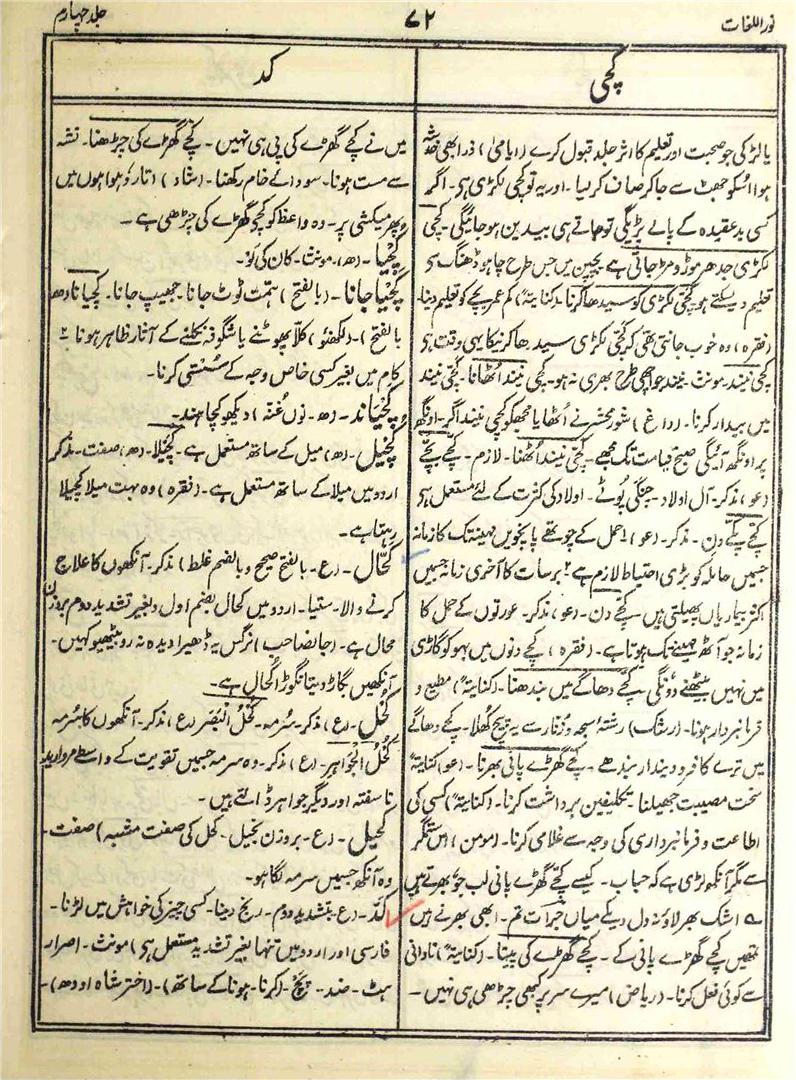 نور اللغات
۷۲
جلد چہارم
کچی
کد
یا لڑکی جو صحبت اور تعلیم کا اثر جلد قبول کرے (ایامیٰ) ذرا بھی خدشہ
ہوا اسکو جھٹ سے جا کر صاف کر لیا۔ اور یہ تو کچی لکڑی ہی۔ اگر
کسی بد عقیدہ کے پالے پڑیگی تو جاتے ہی بیدین ہو جائیگی۔ کچی
لکڑی جدھر موڑو مڑ جاتی ہے بچپن میں جس طرح چاہو ڈھنگ ہی
تعلیم دیسکتے ہو کچّی لکڑی کو سیدھا کرنا۔ (کنایتہً) کم عمر بچے کو تعلیم دینا۔
(فقرہ) وہ خوب جانتی تھی کہ کچّی لکڑی سیدھا کرنیکا یہی وقت ہی
کچی نیند۔ مونث۔ نیند جو اچھی طرح بھری نہ ہو۔ کچی نیند اُٹھانا۔ کچّی نیند
میں بیدار کرنا۔ (داغ) شور محشر نے اُٹھایا مجھکو کچی نیند اگر۔ اونگھ
پر اونگھ آئیگی صبح قیامت تک مجھے۔ کچّی نیند اُٹھنا۔ لازم۔ کچے بچّے
(عو) مذکر۔ آل اولاد۔ جنگی پوٹے۔ اولاد کی کثرت کے لئے مستعمل ہی
کچّے پکّے دن۔ مذکر۔ (عو) ۱ حمل کے چوتھے پانچویں مہینہ تک کا زمانہ
جسمیں حاملہ کو بڑی احتیاط لازم ہے ۲ برسات کا آخری زمانہ جسمیں
اکثر بیماریاں پھیلتی ہیں۔ کچّے دن۔ (عو) مذکر۔ عورتوں کے حمل کا
زمانہ جو آٹھ مہینے تک ہوتا ہے۔ (فقرہ) کچے دنوں میں بہو کو گاڑی
میں نہیں بیٹھنے دونگی۔ کچّے دھاگے میں بندھنا۔ (کنایتہً) مطیع و
فرمانبردار ہونا۔ (رشک) رشتۂ سبحہ و زنار سے یہ پیچ کھلا۔ کچے دھاگے
میں ترے کافر و دیندار بندھے۔ کچے گھڑے پانی بھرنا۔ (عو) کنایتہً
سخت مصیبت جھیلنا۔ تکلیفیں برداشت کرنا۔ (کنایتہً) کسی کی
اطاعت و فرمانبرداری کی وجہ سے غلامی کرنا۔ (مومن) اس ستمگر
سے مگر آنکھ لڑی ہے کہ حباب۔ کیسے کچّے گھڑے پانی لب جو بھرتے ہیں
ے اشک بھر لاؤ نہ دل دیکے میاں جرات تم۔ ابھی بھرنے ہیں
تمھیں کچے گھڑے پانی کے۔ کچے گھڑے کی پینا۔ (کنایتہً) نادانی
سے کوئی فعل کرنا۔ (ریاض) میرے سر پر کبھی چڑھی ہی نہیں۔
میں نے کچے گھڑے کی پی ہی نہیں۔ کچّے گھڑے کی چڑھنا۔ نشہ
سے مست ہونا۔ سودائے خام رکھنا۔ (شاد) اتارو ہوا ہوں میں
پھر میکشی پر۔ وہ واعظ کو کچّو گھڑے کی چڑھی ہے۔
کچیا۔ (ھ)۔ مونث۔ کان کی لَو۔
کچیا جانا۔ (بالفتح) ہمت ٹوٹ جانا۔ جھیپ جانا۔ کچیانا (ھ
بالفتح)۔ (لکھنؤ) کلّا پھوٹنے یا شگوفہ نکلنے کے آثار ظاہر ہونا ۲
کام میں بغیر کسی خاص وجہ کے سُستی کرنا۔
کچیاند۔ (ھ۔ نون غنّہ) دیکھو کچاہند۔
کچیل۔ (ھ) میل کے ساتھ مستعمل ہے۔ کچیلا۔ (ھ) صفت۔ مذکر
اردو میں میلا کے ساتھ مستعمل ہے۔ (فقرہ) وہ بہت میلا کچیلا
رہتا ہے۔
کحّال۔ (ع۔ بالفتح صحیح و بالضم غلط) مذکر۔ آنکھوں کا علاج
کرنے والا۔ ستیا۔ اردو میں کحال بضم اول و بغیر تشدید دوم بروزن
محال ہے۔ (جانصاحب) نرگس یہ ڈھیرا دیدہ نہ رو بیٹھیو کہیں۔
آنکھیں بگاڑ دیتا نگوڑا کُحال ہے۔
کُحل۔ (ع) مذکر۔ سُرمہ۔ کُحْلُ الْبَصَر (ع) مذکر۔ آنکھوں کا سُرمہ
کُحْلُ الْجَوَاہِر۔ (ع) مذکر۔ وہ سرمہ جسمیں تقویت کے واسطے مروارید
ناسفتہ اور دیگر جواہر ڈالتے ہیں۔
کحیل۔ (ع۔ بروزن نخیل۔ کحل کی صفت مشبہ) صفت۔
وہ آنکھ جسمیں سرمہ لگا ہو۔
کدّ۔ (ع۔ بتشدید دوم۔ رنج دینا۔ کسی چیز کی خواہش میں لڑنا۔
فارسی اور اردو میں تنہا بغیر تشدید مستعمل ہی) مونث۔ اصرار
ہٹ۔ ضد۔ پچ۔ (کرنا۔ ہونا کے ساتھ)۔ (اختر شاہ اودھ)۔